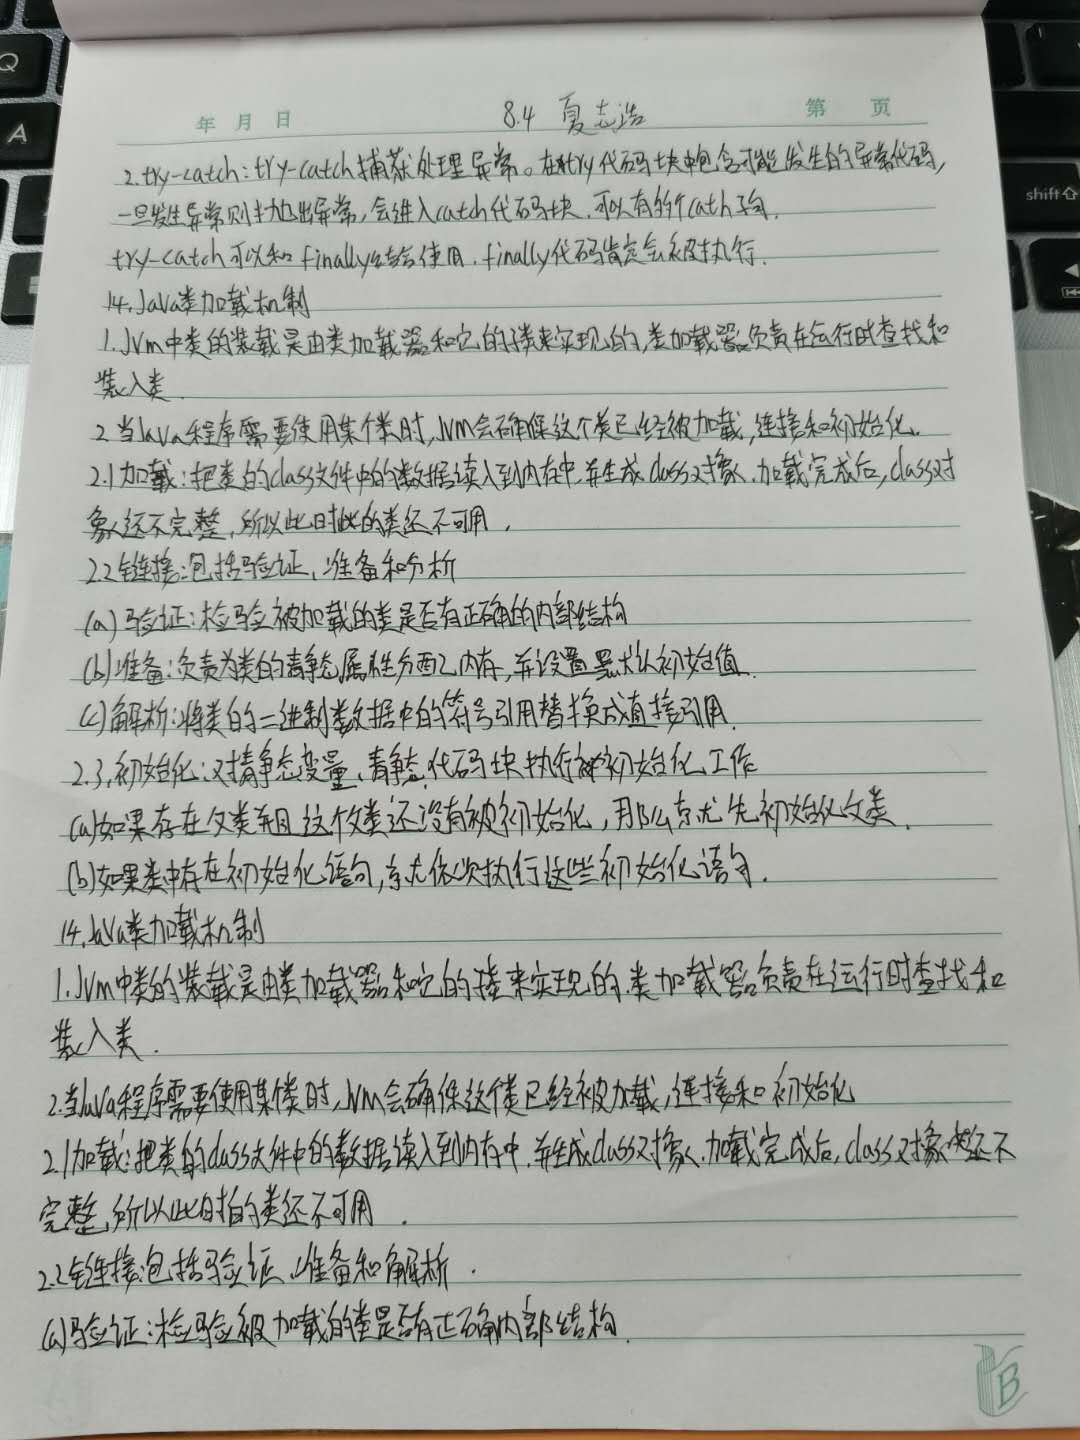 年 月 日 8.4 夏志浩 第 页
2.try-catch:try-catch捕获处理异常。在try代码块中包含可能发生的异常代码,
一旦发生异常则抛出异常,会进入catch代码块.可以有多个cath子句.
try-catch可以和finally结合使用.finally代码肯定会被执行.
14.Java类加载机制
1.Jvm中类的装载是由类加载器和它的子类来实现的,类加载器负责在运行时查找和
装入类.
2.当Java程序需要使用某个类时,Jvm会确保这个类已经被加载,连接和初始化.
2.1加载:把类的class文件中的数据读入到内存中.并生成class对象.加载完成后,class对
象还不完整,所以此时的类还不可用.
2.2链接:包括验证、准备和分析
(a)验证:检验被加载的类是否有正确的内部结构
(b)准备:负责为类的静态属性分配内存,并设置默认初始值.
(c)解析:将类的二进制数据中的符号引用替换成直接引用.
2.3.初始化:对静态变量、静态代码块执行初始化工作
(a)如果存在父类并且这个父类还没有被初始化,那么就先初始化父类.
(b)如果类中存在初始化语句,就依次执行这些初始化语句.
14.Java类加载机制
1.Jvm中类的装载是由类加载器和它的子类来实现的.类加载器负责在运行时查找和
装入类.
2.当Java程序需要使用某个类时,Jvm会确保这个类已经被加载,连接和初始化
2.1加载:把类的class文件中的数据读入到内存中.并生成class对象.加载完成后,class对象还不
完整,所以此时的类还不可用.
2.2链接:包括验证、准备和解析.
(a)验证:检验被加载的类是否有正确内部结构.
B